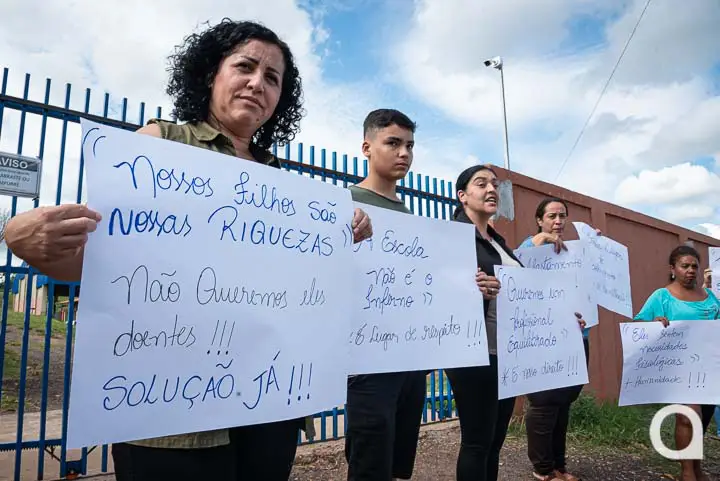 AVISO
"Nossos filhos são
nossas RIQUEZAS"
Não Queremos eles
doentes !!!
SOLUÇÃO JÁ!!!
A Escola
Não é o
Inferno"
Lugar de respeito!!!
Afastamento
Queremos um
Profissional
Equilibrado"
É nosso direito!!!
Eles sentem
necessidades
Fisiológicas"
+ Humanidade!!!
a